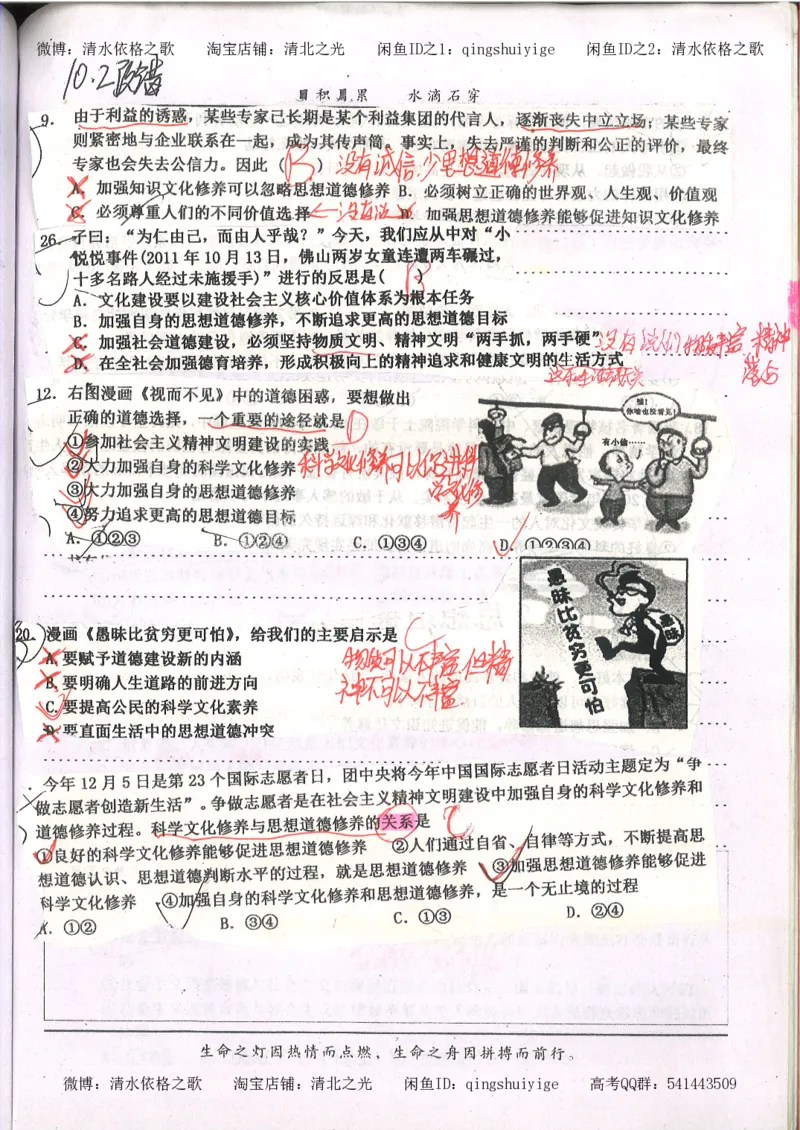 微博：清水依格之歌 淘宝店铺：清北之光 闲鱼ID之1：qingshuiyige 闲鱼ID之2：清水依格之歌
10.2政错
日积月累 水滴石穿
9. 由于利益的诱惑，某些专家已长期是某个利益集团的代言人，逐渐丧失中立立场；某些专家
则紧密地与企业联系在一起，成为其传声筒。事实上，失去严谨的判断和公正的评价，最终
专家也会失去公信力。因此（ B ） 没有诚信，少思想道德修养
A．加强知识文化修养可以忽略思想道德修养 B．必须树立正确的世界观、人生观、价值观
C．必须尊重人们的不同价值选择 ←没有这 D．加强思想道德修养能够促进知识文化修养
26．子曰：“为仁由己，而由人乎哉？”今天，我们应从中对“小
悦悦事件(2011年10月13日，佛山两岁女童连遭两车碾过，
十多名路人经过未施援手)”进行的反思是( B )
A．文化建设要以建设社会主义核心价值体系为根本任务
B．加强自身的思想道德修养，不断追求更高的思想道德目标
C．加强社会道德建设，必须坚持物质文明、精神文明“两手抓，两手硬”
D．在全社会加强德育培养，形成积极向上的精神追求和健康文明的生活方式
12．右图漫画《视而不见》中的道德困惑，要想做出
正确的道德选择，一个重要的途经就是 D
①参加社会主义精神文明建设的实践
②大力加强自身的科学文化修养
③大力加强自身的思想道德修养
④努力追求更高的思想道德目标
A．①②③ B．①②④ C．①③④ D．①②③④
嘘！
你啥也没看见！
有小偷……
20．漫画《愚昧比贫穷更可怕》，给我们的主要启示是 C
A.要赋予道德建设新的内涵
B.要明确人生道路的前进方向
C.要提高公民的科学文化素养
D.要直面生活中的思想道德冲突
物质可以不丰富，但精
神不可以不丰富
愚昧比贫穷更可怕
愚昧
．今年12月5日是第23个国际志愿者日，团中央将今年中国国际志愿者日活动主题定为“争
做志愿者创造新生活”。争做志愿者是在社会主义精神文明建设中加强自身的科学文化修养和
道德修养过程。科学文化修养与思想道德修养的关系是 C
①良好的科学文化修养能够促进思想道德修养 ②人们通过自省、自律等方式，不断提高思
想道德认识、思想道德判断水平的过程，就是思想道德修养 ③加强思想道德修养能够促进
科学文化修养 ④加强自身的科学文化修养和思想道德修养，是一个无止境的过程
A．①② B．③④ C．①③ D．②④
生命之灯因热情而点燃，生命之舟因拼搏而前行。
微博：清水依格之歌 淘宝店铺：清北之光 闲鱼ID：qingshuiyige 高考QQ群：541443509